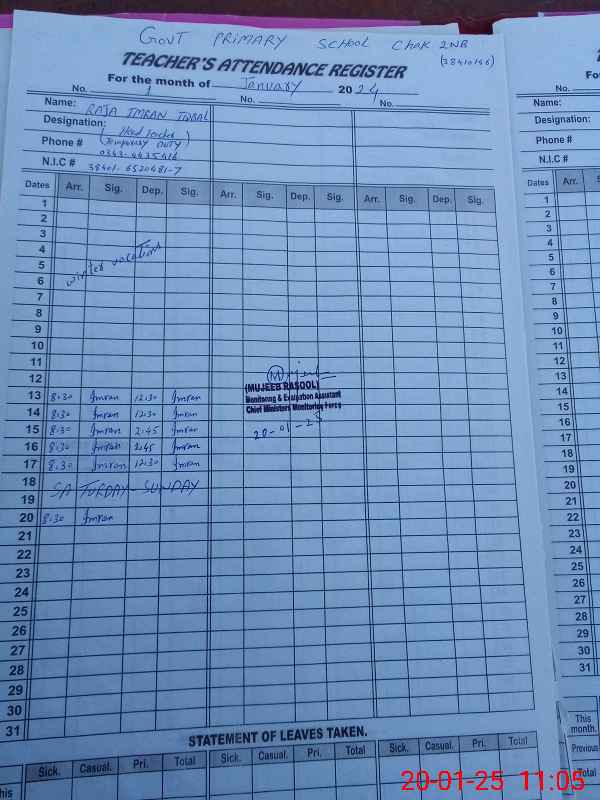 GOVT PRIMARY SCHOOL Chak 2NB
TEACHER'S ATTENDANCE REGISTER (38410146)
For the month of January 2024
No. 1 No. No. No.
Name: RAJA IMRAN IQBAL Name:
Designation: Head Teacher Designation:
(Temporary DUTY)
Phone # Phone #
N.I.C # 38401-6520481-7 N.I.C #
Dates Arr. Sig. Dep. Sig. Arr. Sig. Dep. Sig. Arr. Sig. Dep. Sig. Dates Arr.
1 1
2 2
3 3
4 4
5 winter vacations 5
6 6
7 7
8 8
9 9
10 10
11 11
12 12
(MUJEEB RASOOL)
Monitoring & Evaluation Assistant
Chief Ministers Monitoring Force
20-01-25
13 8:30 Imran 12:30 Imran 13
14 8:30 Imran 12:30 Imran 14
15 8:30 Imran 2:45 Imran 15
16 8:30 Imran 2:45 Imran 16
17 8:30 Imran 12:30 Imran 17
18 SATURDAY - SUNDAY 18
19 19
20 8:30 Imran 20
21 21
22 22
23 23
24 24
25 25
26 26
27 27
28 28
29 29
30 30
31 31
STATEMENT OF LEAVES TAKEN.
Sick. Casual. Pri. Total Sick. Casual. Pri. Total Sick. Casual. Pri. Total
This month.
Previous
Total
20-01-25 11:05